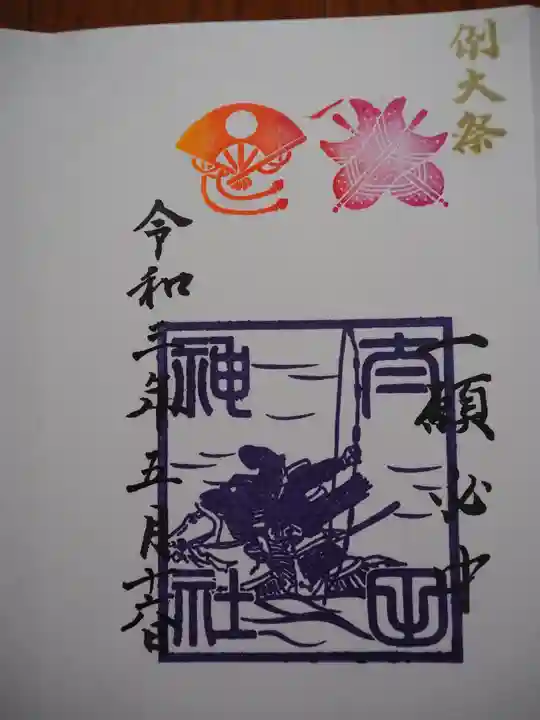 例大祭
一願必中
太田神社
令和三年五月十六日